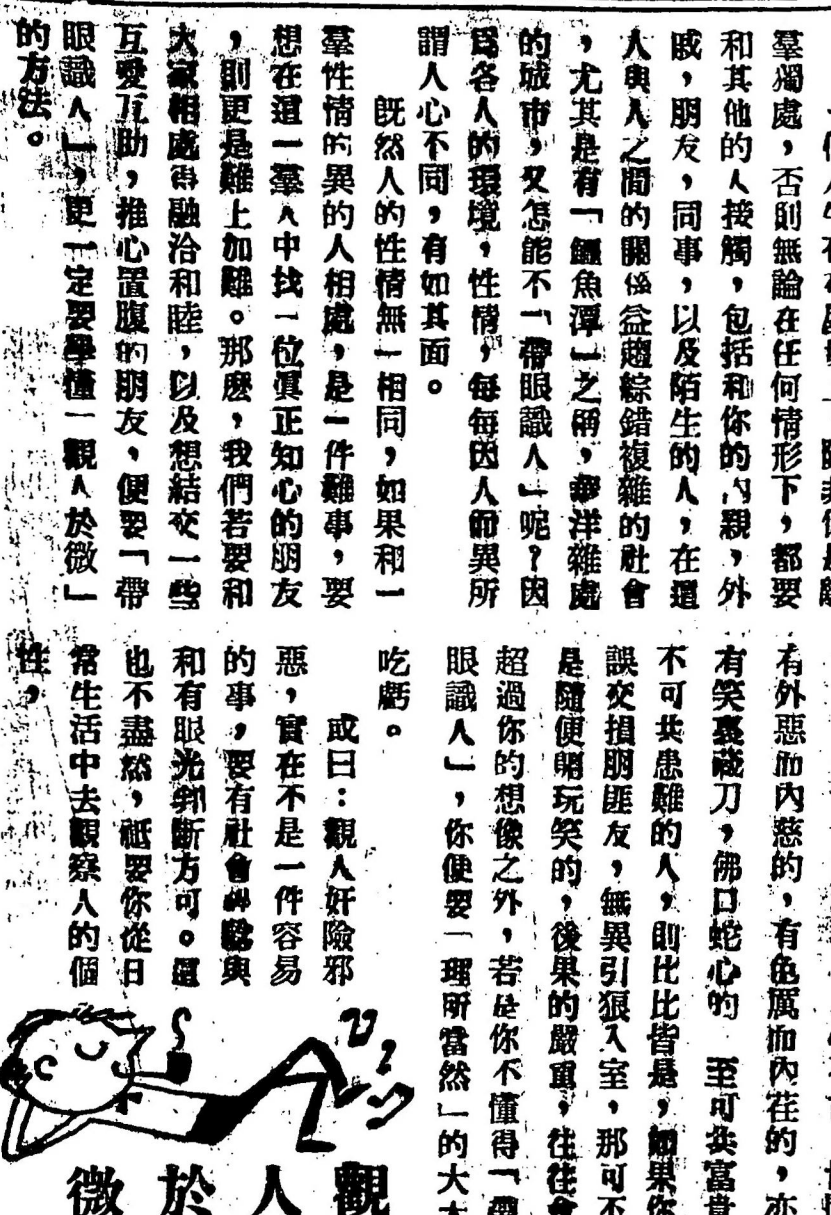 羣獨處，否則無論在任何情形下，都要
和其他的人接觸，包括和你的內親，外
戚，朋友，同事，以及陌生的人，在這
人與人之間的關係益趨綜錯複雜的社會
，尤其是有「鱷魚潭」之稱，華洋雜處
的城市，又怎能不「帶眼識人」呢？因
爲各人的環境，性情，每每因人而異所
謂人心不同，有如其面。
既然人的性情無一相同，如果和一
羣性情的異的人相處，是一件難事，要
想在這一羣人中找一位眞正知心的朋友
，則更是難上加難。那麽，我們若要和
大家相處得融洽和睦，以及想結交一些
互愛互助，推心置腹的朋友，便要「帶
眼識人」，更一定要學懂「觀人於微」
的方法。
有外惡而內慈的，有色厲而內荏的，亦
有笑裏藏刀，佛口蛇心的 至可共富貴
不可共患難的人，則比比皆是，如果你
誤交損朋匪友，無異引狼入室，那可不
是隨便開玩笑的，後果的嚴重，往往會
超過你的想像之外，若是你不懂得「帶
眼識人」，你便要「理所當然」的大大
吃虧。
或曰：觀人奸險邪
惡，實在不是一件容易
的事，要有社會經驗與
和有眼光判斷方可。這
也不盡然，祇要你從日
常生活中去觀察人的個
性，
觀人於微